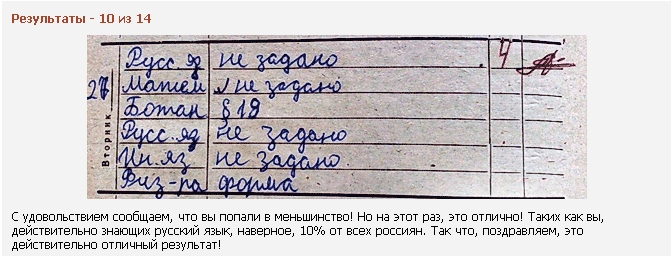 Результаты - 10 из 14
Русс.яз не задано 4
27 Матем не задано
Ботан § 19
Русс.яз не задано
Ин.яз не задано
Физ-ра форма
Вторник
С удовольствием сообщаем, что вы попали в меньшинство! Но на этот раз, это отлично! Таких как вы,
действительно знающих русский язык, наверное, 10% от всех россиян. Так что, поздравляем, это
действительно отличный результат!